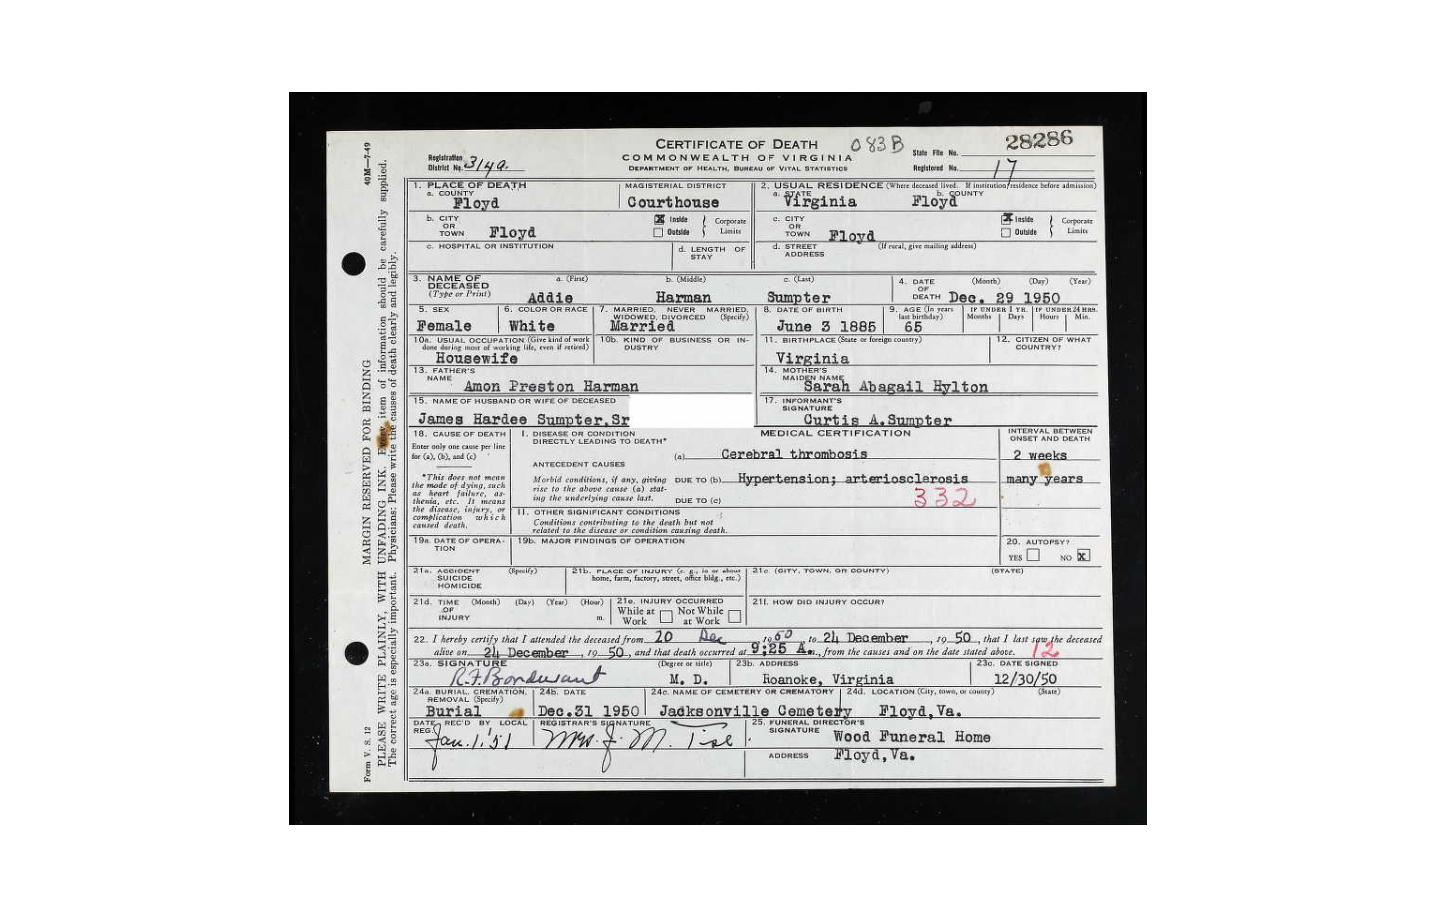 CERTIFICATE OF DEATH 083B 28286
COMMONWEALTH OF VIRGINIA State File No.
Registration District No. 314a. DEPARTMENT OF HEALTH, BUREAU OF VITAL STATISTICS Registered No. 17
1. PLACE OF DEATH MAGISTERIAL DISTRICT 2. USUAL RESIDENCE (Where deceased lived. If institution, residence before admission)
a. COUNTY a. STATE b. COUNTY
Floyd Courthouse Virginia Floyd
b. CITY OR TOWN Floyd X Inside Outside Corporate Limits c. CITY OR TOWN Floyd X Inside Outside Corporate Limits
c. HOSPITAL OR INSTITUTION d. LENGTH OF STAY d. STREET ADDRESS (If rural, give mailing address)
3. NAME OF DECEASED (Type or Print) a. (First) b. (Middle) c. (Last) 4. DATE OF DEATH (Month) (Day) (Year)
Addie Harman Sumpter Dec. 29 1950
5. SEX 6. COLOR OR RACE 7. MARRIED, NEVER MARRIED, WIDOWED, DIVORCED (Specify) 8. DATE OF BIRTH 9. AGE (In years last birthday) IF UNDER 1 YR. Months Days IF UNDER 24 HRS. Hours Min.
Female White Married June 3 1885 65
10a. USUAL OCCUPATION (Give kind of work done during most of working life, even if retired) 10b. KIND OF BUSINESS OR INDUSTRY 11. BIRTHPLACE (State or foreign country) 12. CITIZEN OF WHAT COUNTRY?
Housewife Virginia
13. FATHER'S NAME 14. MOTHER'S MAIDEN NAME
Amon Preston Harman Sarah Abagail Hylton
15. NAME OF HUSBAND OR WIFE OF DECEASED 17. INFORMANT'S SIGNATURE
James Hardee Sumpter,Sr Curtis A.Sumpter
18. CAUSE OF DEATH
Enter only one cause per line for (a), (b), and (c)
*This does not mean the mode of dying, such as heart failure, asthenia, etc. It means the disease, injury, or complication which caused death.
MEDICAL CERTIFICATION INTERVAL BETWEEN ONSET AND DEATH
I. DISEASE OR CONDITION DIRECTLY LEADING TO DEATH* (a) Cerebral thrombosis 2 weeks
ANTECEDENT CAUSES
Morbid conditions, if any, giving rise to the above cause (a) stating the underlying cause last.
DUE TO (b) Hypertension; arteriosclerosis many years
DUE TO (c) 332
11. OTHER SIGNIFICANT CONDITIONS
Conditions contributing to the death but not related to the disease or condition causing death.
19a. DATE OF OPERATION 19b. MAJOR FINDINGS OF OPERATION 20. AUTOPSY?
YES NO X
21a. ACCIDENT SUICIDE HOMICIDE (Specify) 21b. PLACE OF INJURY (e. g., in or about home, farm, factory, street, office bldg., etc.) 21c. (CITY, TOWN, OR COUNTY) (STATE)
21d. TIME OF INJURY (Month) (Day) (Year) (Hour) m. 21e. INJURY OCCURRED While at Work Not While at Work 21f. HOW DID INJURY OCCUR?
22. I hereby certify that I attended the deceased from 20 Dec, 1950, to 24 December, 1950, that I last saw the deceased
alive on 24 December, 1950, and that death occurred at 9:25 A.m., from the causes and on the date stated above. 12
23a. SIGNATURE (Degree or title) 23b. ADDRESS 23c. DATE SIGNED
R.F. Bondurant M. D. Roanoke, Virginia 12/30/50
24a. BURIAL, CREMATION, REMOVAL (Specify) 24b. DATE 24c. NAME OF CEMETERY OR CREMATORY 24d. LOCATION (City, town, or county) (State)
Burial Dec.31 1950 Jacksonville Cemetery Floyd,Va.
DATE REC'D BY LOCAL REG. REGISTRAR'S SIGNATURE 25. FUNERAL DIRECTOR'S SIGNATURE
Jan. 1. '51 Mrs. J. M. Wood Funeral Home
ADDRESS Floyd,Va.
Form V. S. 12 MARGIN RESERVED FOR BINDING 40M—7-49
PLEASE WRITE PLAINLY, WITH UNFADING INK. Every item of information should be carefully supplied.
The correct age is especially important. Physicians: Please write the causes of death clearly and legibly.